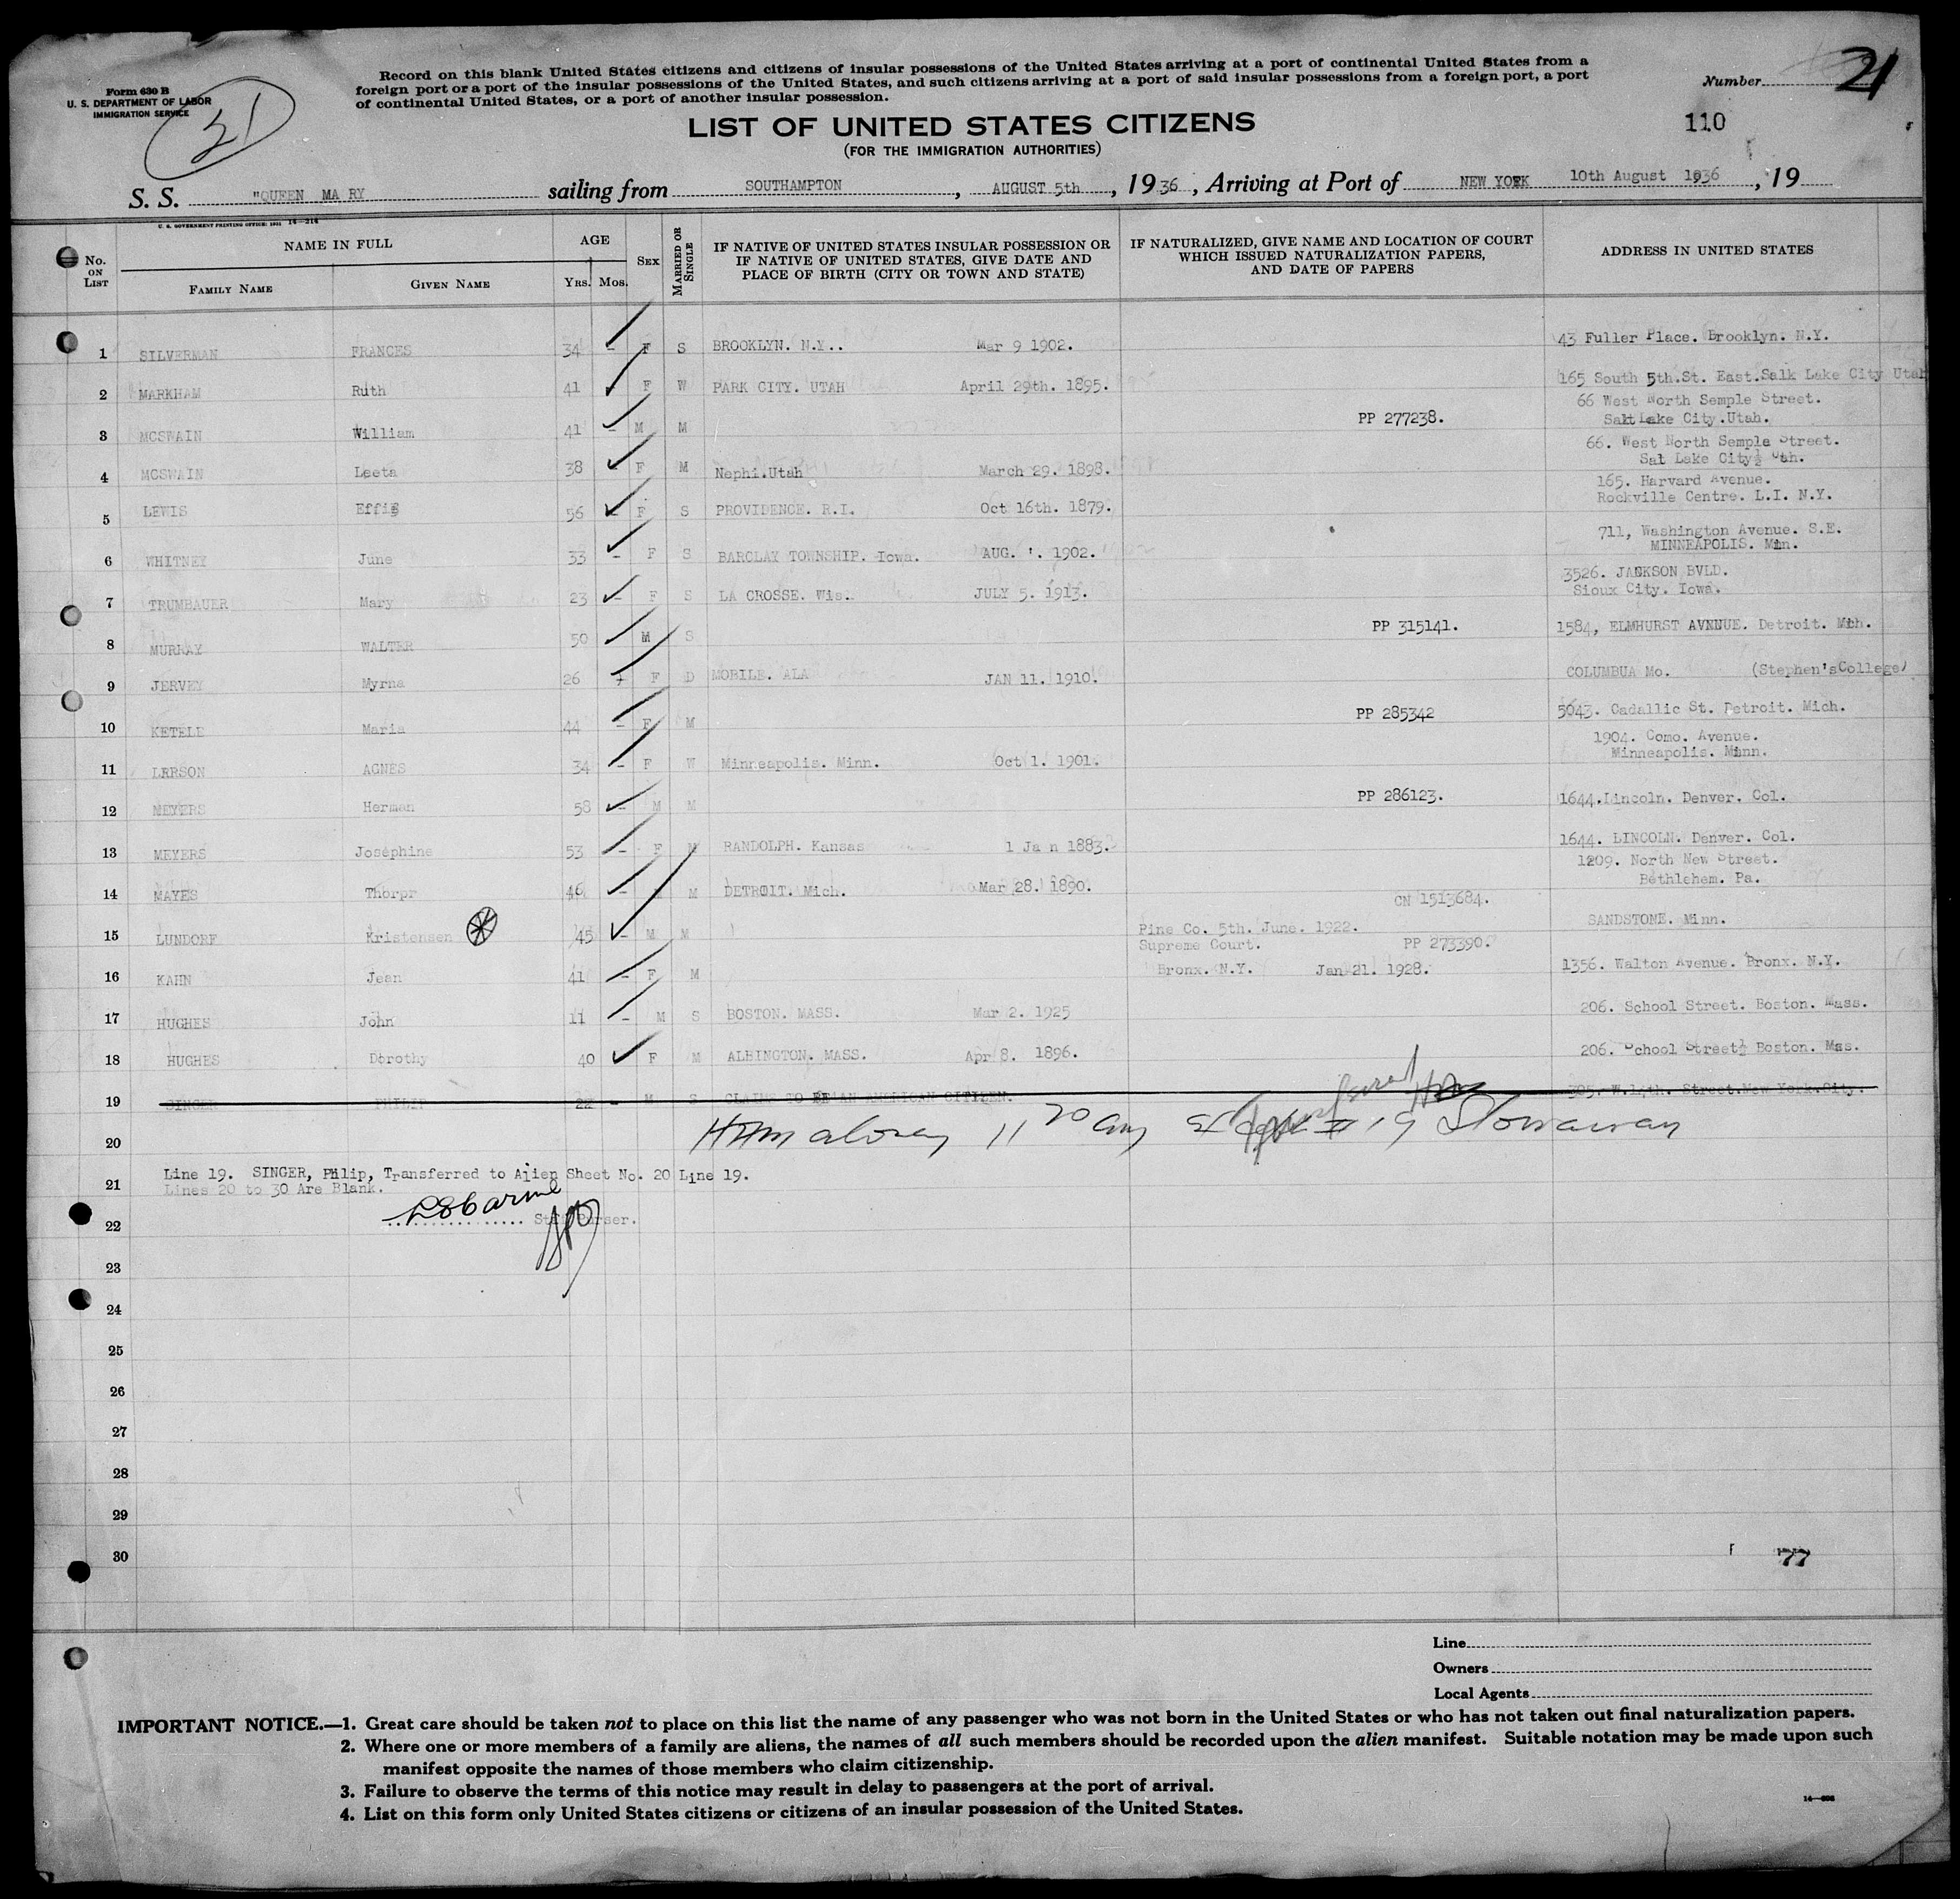 Form 630 B
U. S. DEPARTMENT OF LABOR
IMMIGRATION SERVICE
Record on this blank United States citizens and citizens of insular possessions of the United States arriving at a port of continental United States from a
foreign port or a port of the insular possessions of the United States, and such citizens arriving at a port of said insular possessions from a foreign port, a port
of continental United States, or a port of another insular possession.
Number 21
110
LIST OF UNITED STATES CITIZENS
(FOR THE IMMIGRATION AUTHORITIES)
S. S. "QUEEN MA RY sailing from SOUTHAMPTON, AUGUST 5th, 1936, Arriving at Port of NEW YORK 10th August 1936, 19
U. S. GOVERNMENT PRINTING OFFICE: 1931 14—214
No. ON LIST
NAME IN FULL
FAMILY NAME
GIVEN NAME
AGE
YRS. MOS.
SEX
MARRIED OR SINGLE
IF NATIVE OF UNITED STATES INSULAR POSSESSION OR
IF NATIVE OF UNITED STATES, GIVE DATE AND
PLACE OF BIRTH (CITY OR TOWN AND STATE)
IF NATURALIZED, GIVE NAME AND LOCATION OF COURT
WHICH ISSUED NATURALIZATION PAPERS,
AND DATE OF PAPERS
ADDRESS IN UNITED STATES
1 SILVERMAN FRANCES 34 - F S BROOKLYN. N.Y.. Mar 9 1902. 43 Fuller Place. Brooklyn. N.Y.
2 MARKHAM Ruth 41 - F W PARK CITY. UTAH April 29th. 1895. 165 South 5th.St. East.Salk Lake City Utah
3 MCSWAIN William 41 - M M PP 277238. 66 West North Semple Street.
Salt Lake City.Utah.
4 MCSWAIN Leeta 38 F M Nephi.Utah March 29. 1898. 66. West North Semple Street.
Sal Lake City½ Uah.
5 LEWIS Effie 56 - F S PROVIDENCE. R.I. Oct 16th. 1879. 165. Harvard Avenue.
Rockville Centre. L.I. N.Y.
6 WHITNEY June 33 - F S BARCLAY TOWNSHIP. Iowa. AUG. '. 1902. 711, Washington Avenue. S.E.
MINNEAPOLIS. Min.
7 TRUMBAUER Mary 23 - F S LA CROSSE. Wis.. JULY 5. 1913. 3526. JACKSON BVLD.
Sioux City. Iowa.
8 MURRAY WALTER 50 M S PP 315141. 1584, ELMHURST AVNNUE. Detroit. Mich.
9 JERVEY Myrna 26 F D MOBILE. ALA JAN 11. 1910. COLUMBUA Mo. (Stephen'sCollege)
10 KETELE Maria 44 - F M PP 285342 5643. Cadallic St. Detroit. Mich.
11 LERSON AGNES 34 - F W Minneapolis. Minn. Oct 1. 1901. 1904. Como. Avenue.
Minneapolis. Minn.
12 MEYERS Herman 58 - M M PP 286123. 1644.Lincoln. Denver. Col.
13 MEYERS Josephine 53 - F M RANDOLPH. Kansas 1 Ja n 1883. 1644. LINCOLN. Denver. Col.
14 MAYES Thorpr 46 - M DETROIT. Mich. Mar 28. 1890. 1209. North New Street.
Bethlehem. Pa.
CN 1513684.
15 LUNDORF Kristensen 45 - M M Pine Co. 5th. June. 1922. SANDSTONE. Minn.
Supreme Court. PP 273390.
16 KAHN Jean 41 - F M Bronx. N.Y. Jan 21. 1928. 1356. Walton Avenue. Bronx. N.Y.
17 HUGHES John 11 - M S BOSTON. MASS. Mar 2. 1925 206. School Street. Boston. Mass.
18 HUGHES Dorothy 40 F M ALBINGTON. MASS. Apr 8. 1896. 206. School Street½ Boston. Mas.
19 SINGER PHILIP 22 - M S CLAIMS TO BE AN AMERICAN CITIZEN. 305. W.14th. Street.New York.City.
20 11 20 am # 19 Stowaway
21 Line 19. SINGER, Philip, Transferred to Alien Sheet No. 20 Line 19.
Lines 20 to 30 Are Blank.
22 Staff Purser.
23
24
25
26
27
28
29
30
77
Line
Owners
Local Agents
IMPORTANT NOTICE.—1. Great care should be taken not to place on this list the name of any passenger who was not born in the United States or who has not taken out final naturalization papers.
2. Where one or more members of a family are aliens, the names of all such members should be recorded upon the alien manifest. Suitable notation may be made upon such
manifest opposite the names of those members who claim citizenship.
3. Failure to observe the terms of this notice may result in delay to passengers at the port of arrival.
4. List on this form only United States citizens or citizens of an insular possession of the United States.